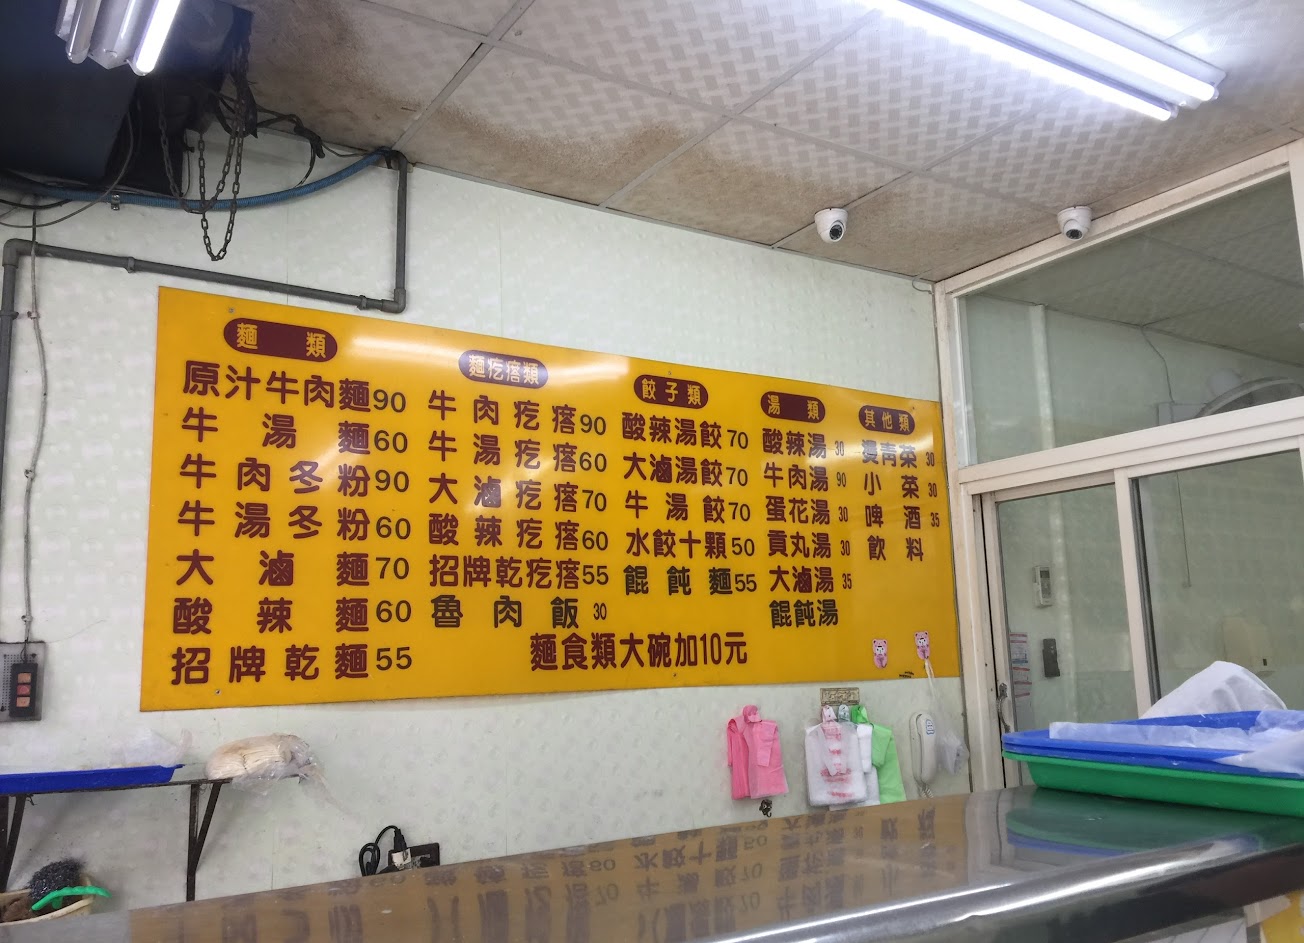 麵類
原汁牛肉麵90
牛湯麵60
牛肉冬粉90
牛湯冬粉60
大滷麵70
酸辣麵60
招牌乾麵55
麵疙瘩類
牛肉疙瘩90
牛湯疙瘩60
大滷疙瘩70
酸辣疙瘩60
招牌乾疙瘩55
魯肉飯30
餃子類
酸辣湯餃70
大滷湯餃70
牛湯餃70
水餃十顆50
餛飩麵55
湯類
酸辣湯30
牛肉湯90
蛋花湯30
貢丸湯30
大滷湯35
餛飩湯
其他類
燙青菜30
小菜30
啤酒35
飲料
麵食類大碗加10元